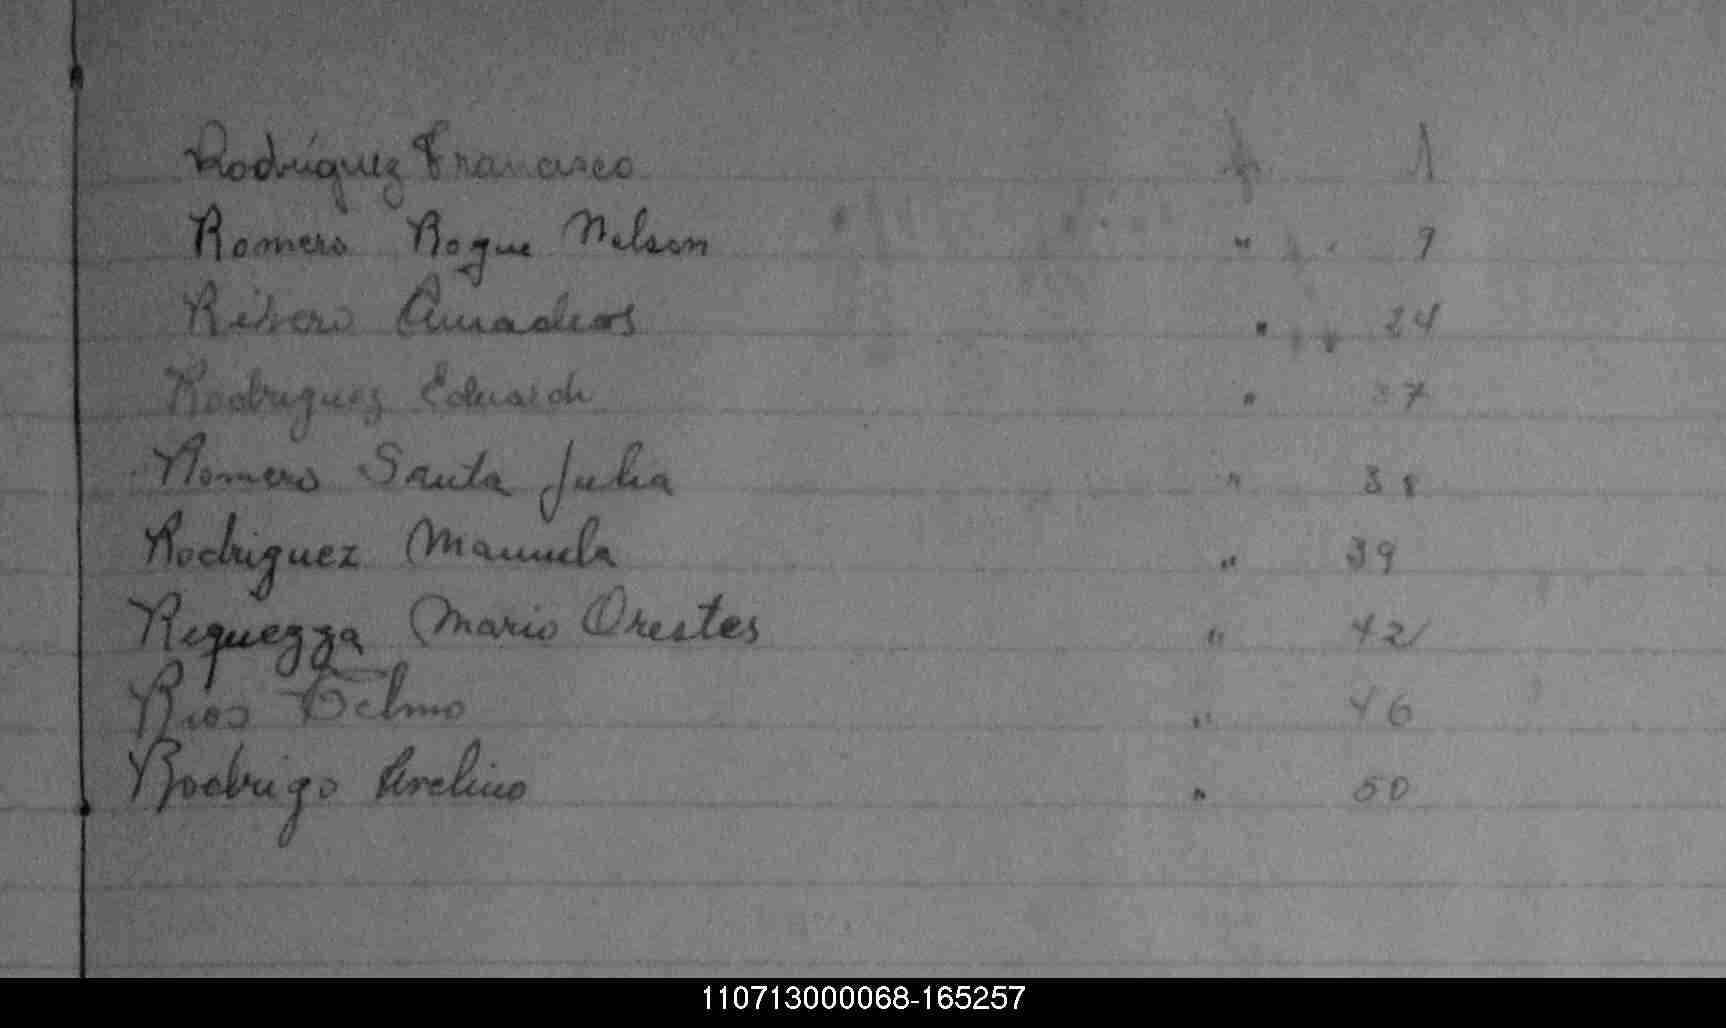 Rodríguez Francisco f 1
Romero Roque Nelson " 9
Rivero Amadeos " 24
Rodriguez Eduardo " 37
Romero Santa Julia " 38
Rodriguez Manuela " 39
Requezza Mario Orestes " 42
Rios Telmo " 46
Rodrigo Avelino " 50
110713000068-165257